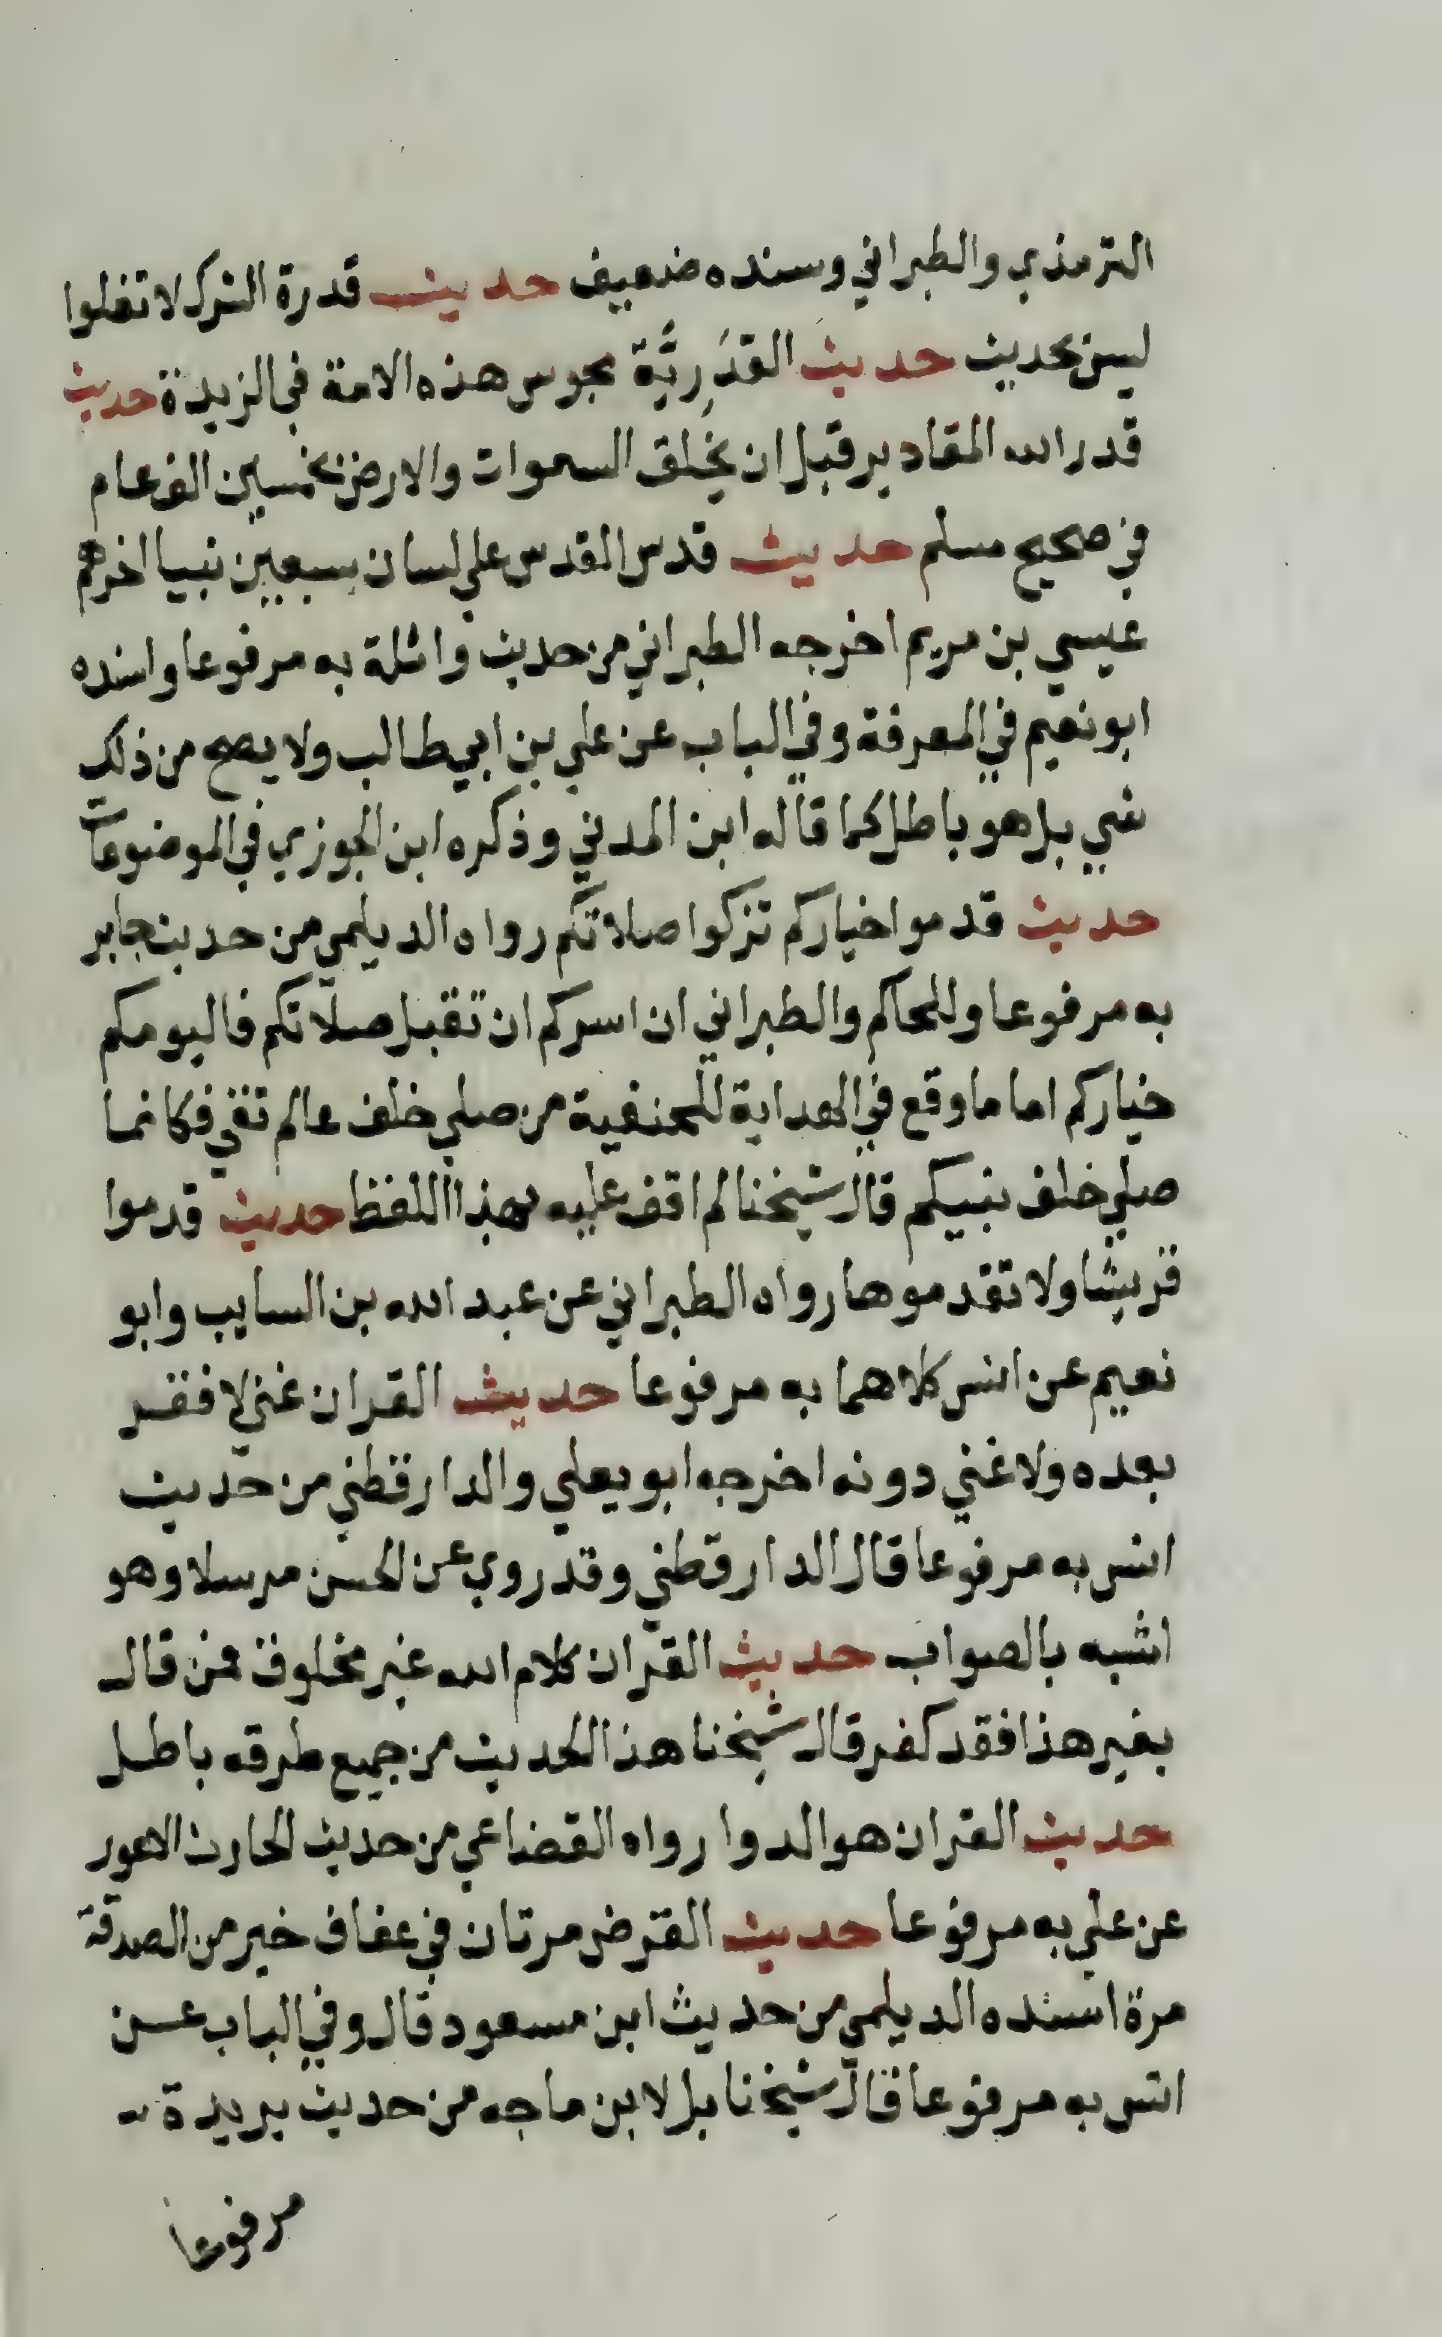 الترمذي والطبراني وسنده ضعيف حديث قدرة الشرك لا تغلوا
ليس بحديث حديث القدَرِيَّة مجوس هذه الامة في الزيدة حديث
قدر الله المقادير قبل ان يخلق السموات والارض بخمسين الف عام
في صحيح مسلم حديث قدس المقدس علي لسان سبعين نبيا اخرهم
عيسي بن مريم اخرجه الطبراني من حديث واثلة به مرفوعا واسنده
ابو نعيم في المعرفة وفي الباب عن علي بن ابي طالب ولا يصح من ذلك
شي بل هو باطل كما قاله ابن المديني وذكره ابن الجوزي في الموضوعات
حديث قدموا خياركم تزكوا صلاتكم رواه الديلمي من حديث جابر
به مرفوعا وللحاكم والطبراني ان اسركم ان تقبل صلاتكم فاليومكم
خياركم اما ما وقع في الهداية للحنفية من صلي خلف عالم تقي فكانما
صلي خلف نبيكم قال شيخنا لم اقف عليه بهذا اللفظ حديث قدموا
قريشا ولا تقدموها رواه الطبراني عن عبد الله بن السايب وابو
نعيم عن انس كلاهما به مرفوعا حديث القران غني لا فقر
بعده ولا غني دونه اخرجه ابو يعلي والدارقطني من حديث
انس به مرفوعا قال الدارقطني وقد روي عن الحسن مرسلا وهو
اشبه بالصواب حديث القران كلام الله غير مخلوق فمن قال
بغير هذا فقد كفر قال شيخنا هذا الحديث من جميع طرقه باطل
حديث القران هو الدوا رواه القضاعي من حديث الحارث الاعور
عن علي به مرفوعا حديث القرض مرتان في عفاف خير من الصدقة
مرة اسنده الديلمي من حديث ابن مسعود قال وفي الباب عن
انس به مرفوعا قال شيخنا بل لابن ماجه من حديث بريدة
مرفوعا